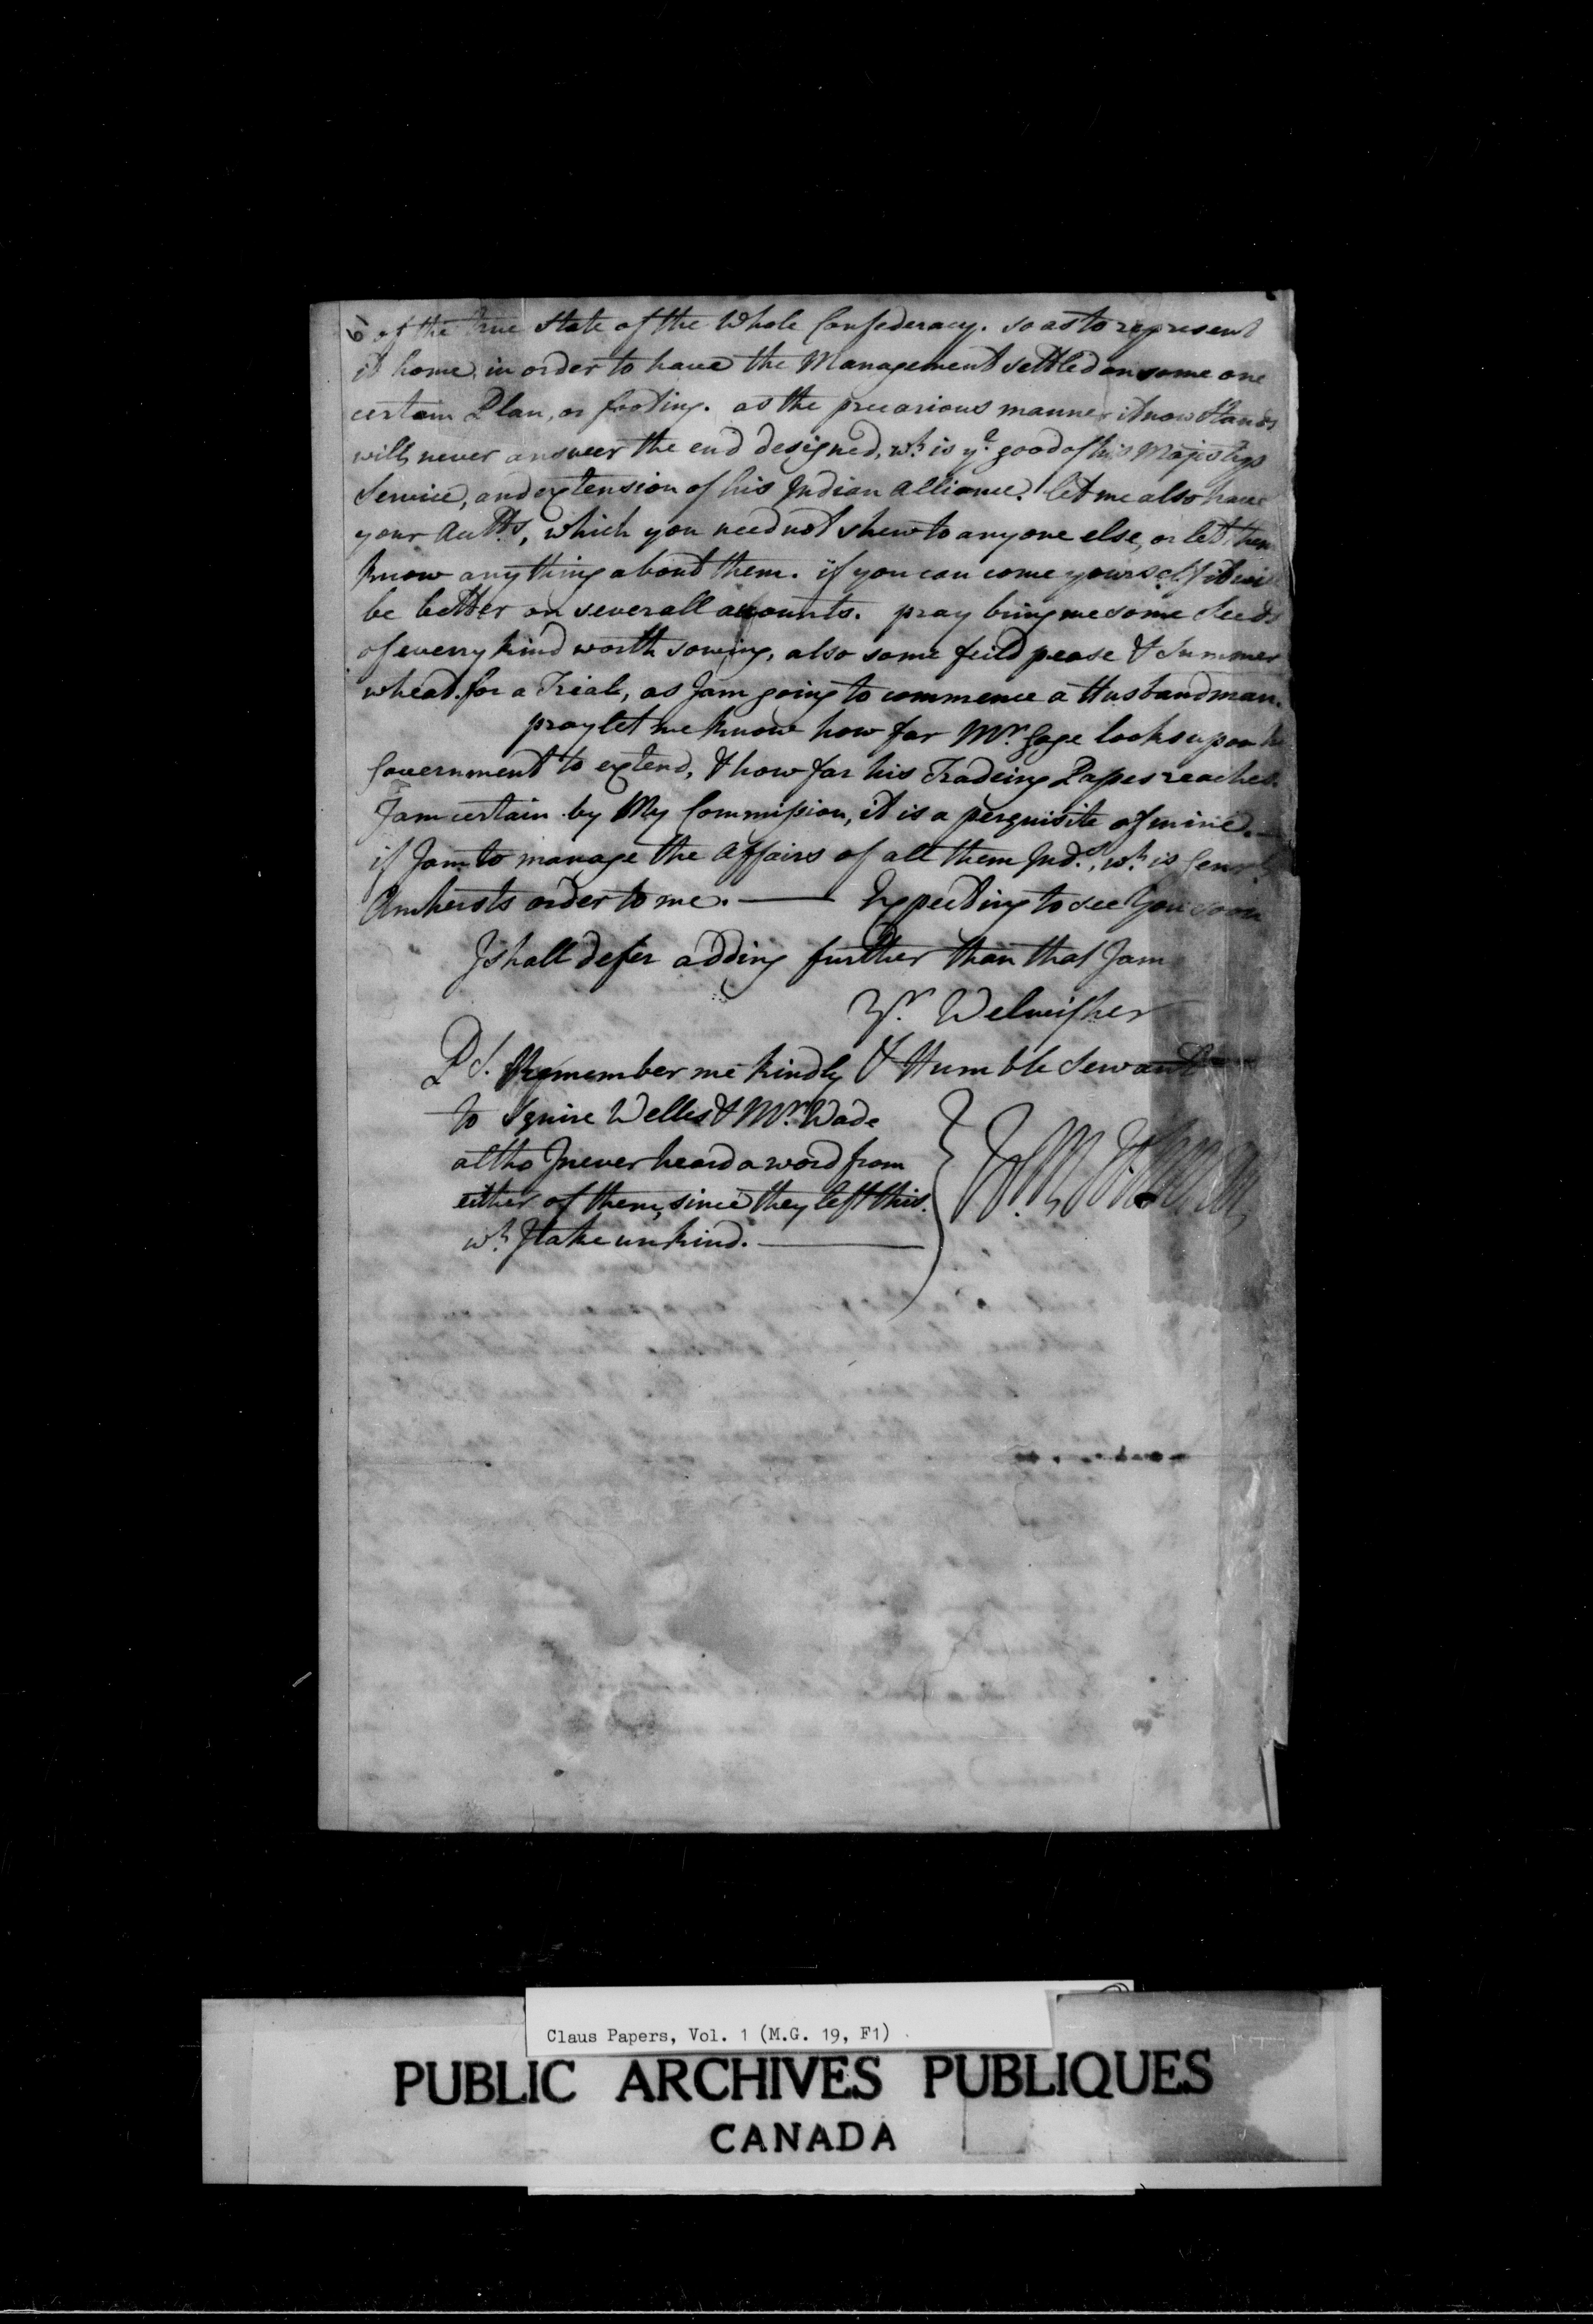 6
of the true State of the Whole Confederacy. so as to represent
it home, in order to have the Management settled on some one
certain Plan, or footing. as the precarious manner it now Stands
will never answer the end designed, wh. is ye. good of his Majestys
Service, and extension of his Indian Alliance. let me also have
your Acctts, which you need not shew to any one else, or let them
know any thing about them. if you can come yourself it will
be better on severall accounts. pray bring me some Seeds
of every kind worth sowing, also some feild pease & Summer
wheat for a Trial, as I am going to commence a Husbandman.
pray let me know how far Mr. Gage looks upon his
Government to extend, & how far his Tradeing Passes reaches.
I am certain by My Commission, it is a perquisite of mine.
if I am to manage the Affairs of all them Inds., wh. is Genrl.
Amhersts order to me. — Expecting to see You soon
I shall defer adding further than that I am
Yr. Welwisher
& Humble Servant
PS. Remember me kindly
to Squire Welles & Mr. Wade
altho I never heard a word from
either of them, since they left this.
wh. I take unkind. —
Claus Papers, Vol. 1 (M.G. 19, F1)
PUBLIC ARCHIVES PUBLIQUES
CANADA